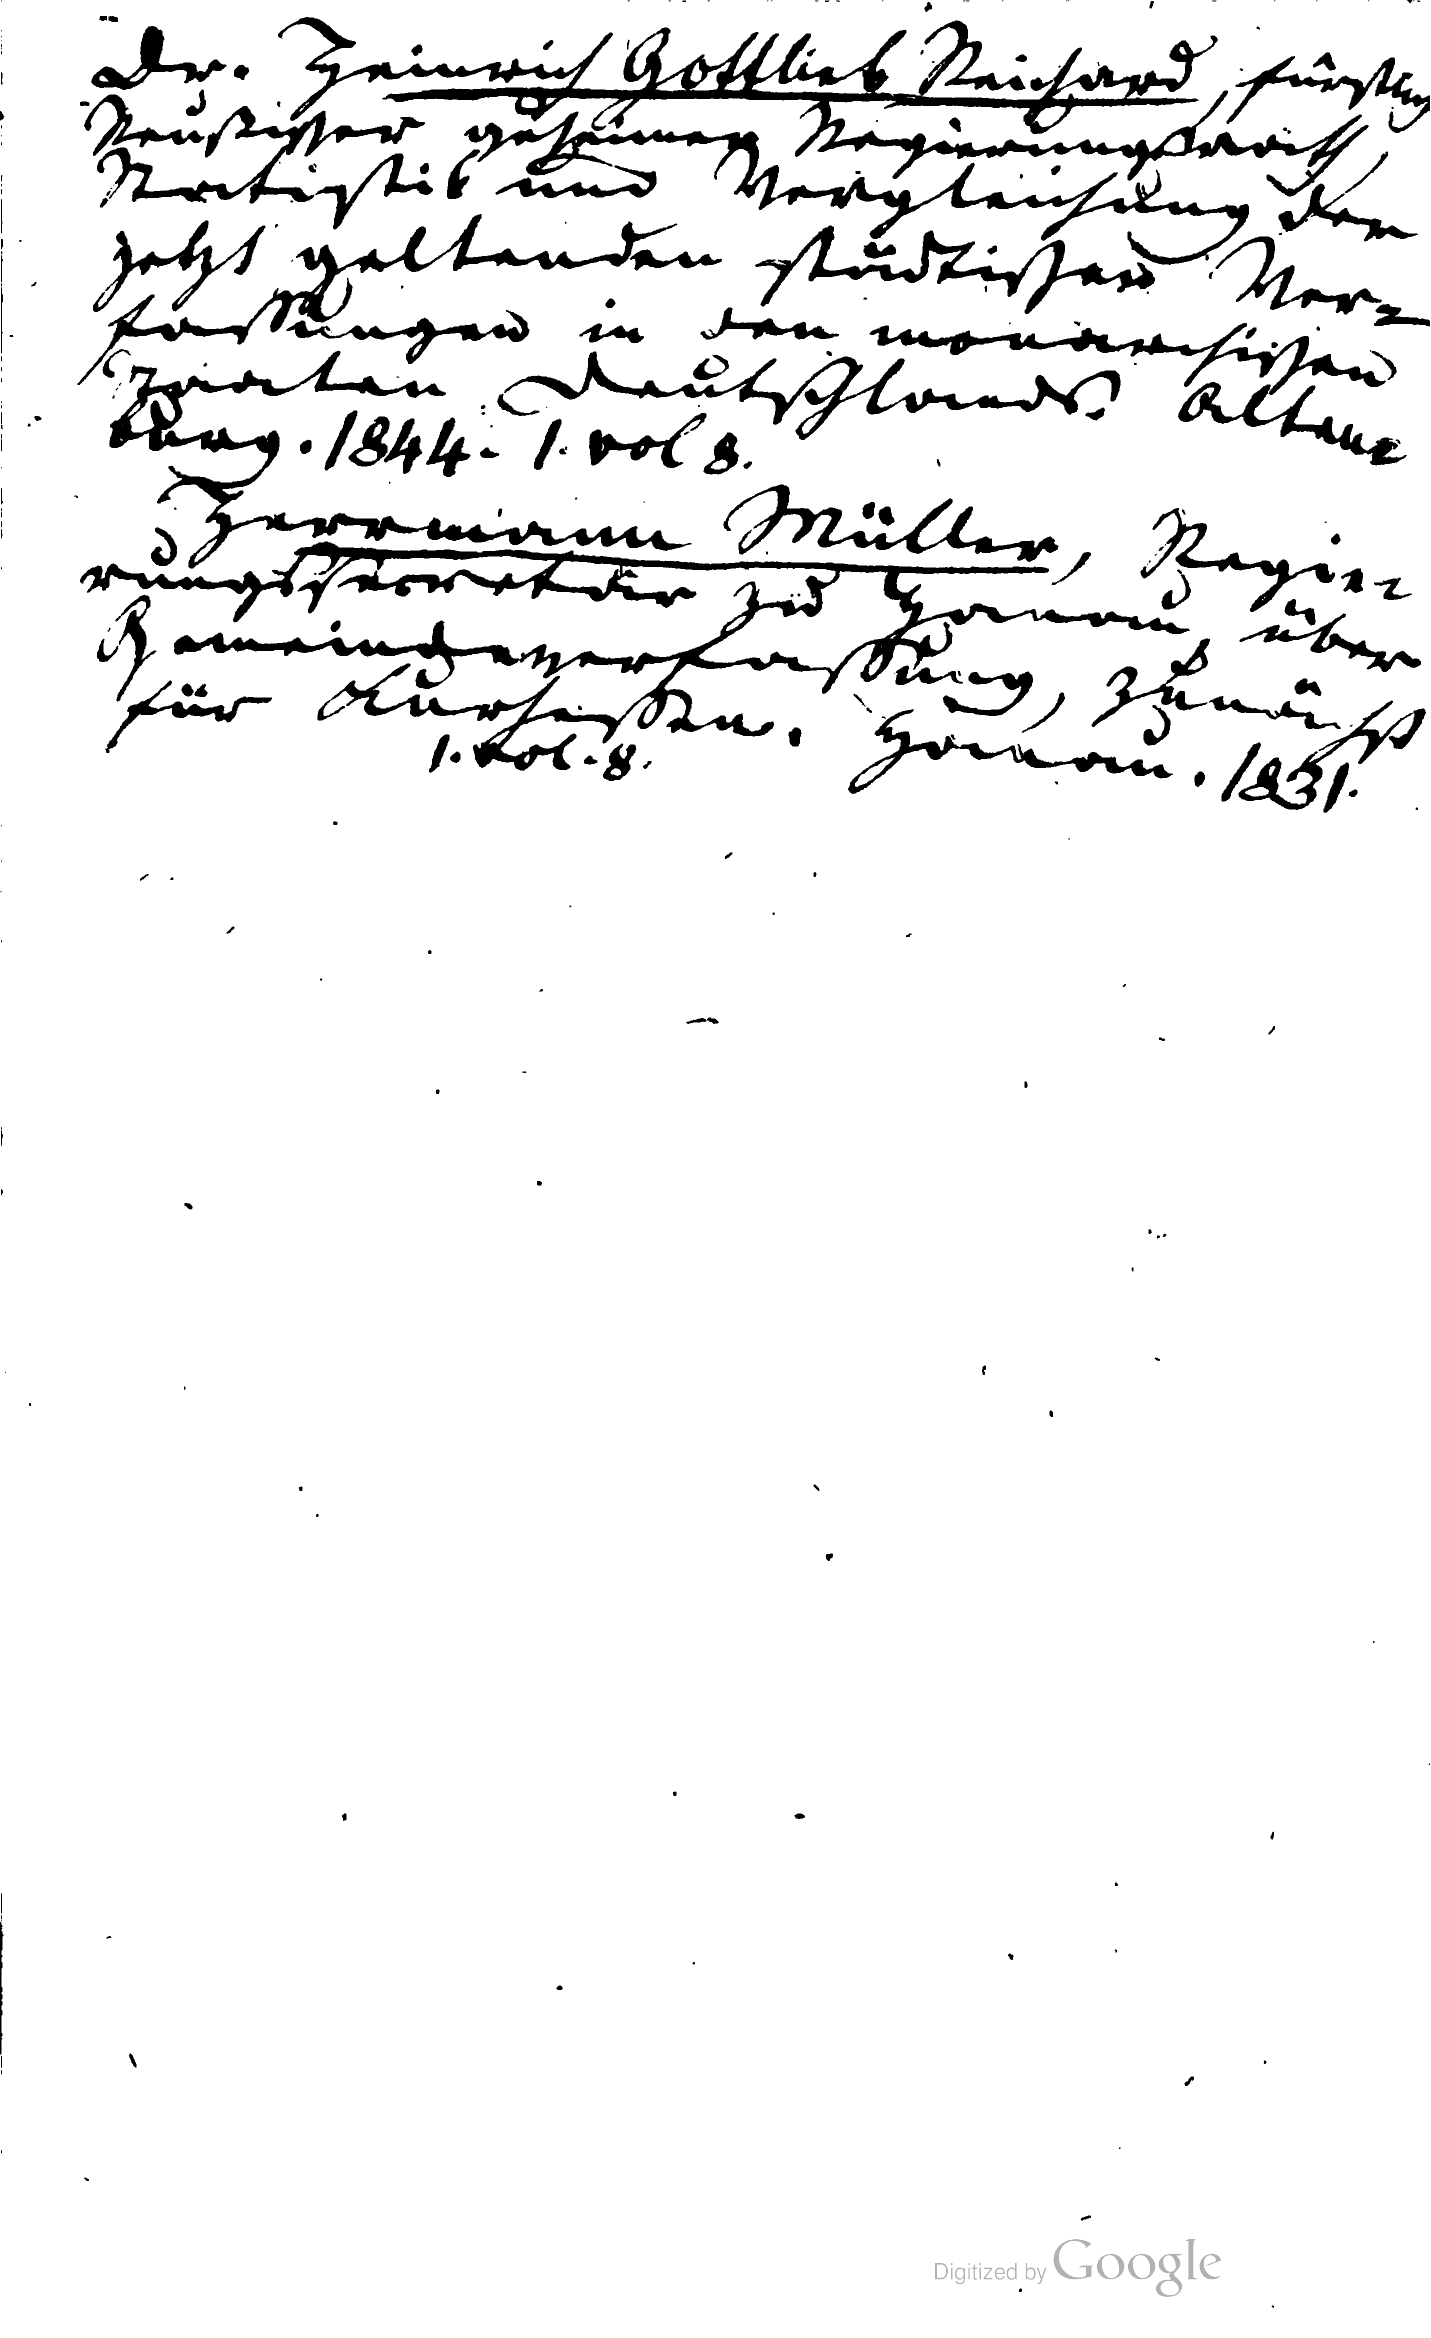 Dr. Heinrich Gottlieb Reichard, fürstlich
Reußischer geheimer Regierungsrath,
Statistik und Vergleichung der
jetzt geltenden städtischen Ver-
fassungen in den monarchischen
Staaten Deutschlands. Alten-
burg. 1844. 1. vol 8.
Herrmann Müller, Regie-
rungssecretär zu Hanau, über
Gemeindeverfassung, zunächst
für Kurhessen. Hanau. 1831.
1. vol. 8.
Digitized by Google